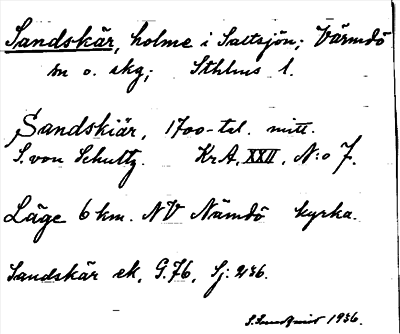 Sandskär, holme i Saltsjön; Värmdö
sn o. skg; Sthlms l.
Sandskiär, 1700-tal. mitt.
S. von Schultz. KrA, XXII, N:o 7.
Läge 6 km. NV Nämdö kyrka.
Sandskär ek, G.76, Sj: 236.
S. Lundquist 1936.